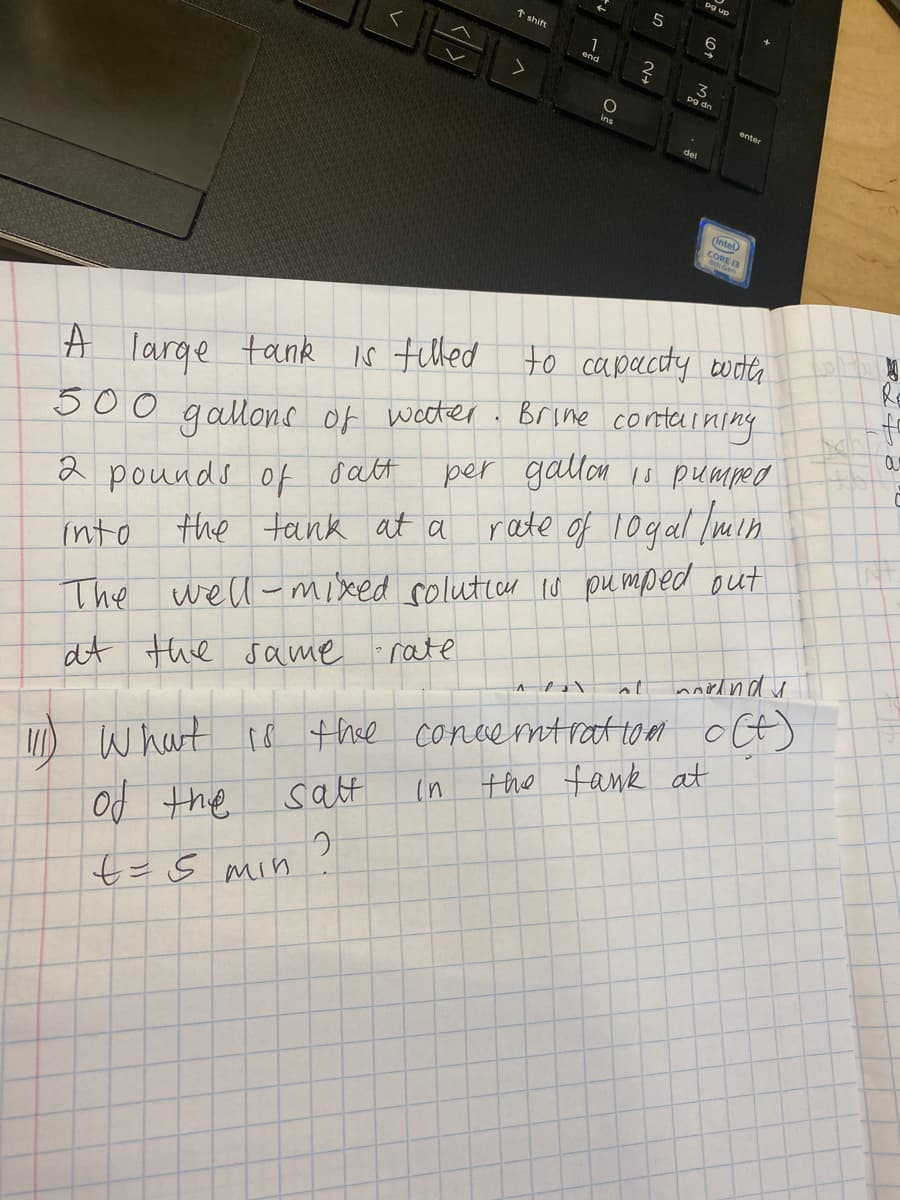 ↑ shift
5
pg up
6
+
1
end
2
3
pg dn
0
ins
.
del
enter
intel
CORE i3
8th Gen
A large tank is filled to capacity with
500 gallons of water. Brine containing
2 pounds of salt per gallon is pumped
into the tank at a rate of 10gal/min
The well-mixed solution is pumped out
at the same rate
III) What is the concerntration c(t)
of the salt in the tank at
t = 5 min ?